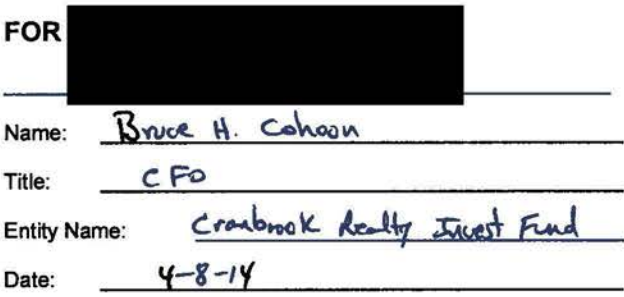 FOR
Name: Bruce H. Cohoon
Title: CFO
Entity Name: Cranbrook Realty Invest Fund
Date: 4-8-14